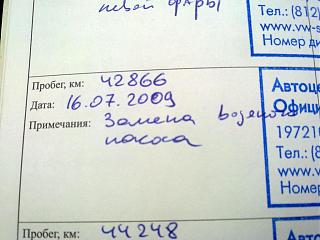 левой фары
Тел.: (812)
www.vw-s
Номер ди
Пробег, км: 42866
Дата: 16.07.2009
Примечания: Замена водяного
насоса
Автоце
Официа
19721
Тел.: (8
www.v
Номер
Пробег, км: 44248
Авто